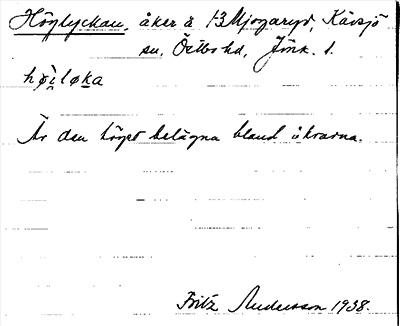 Höglyckan, åker å 13 Mjogaryd, Kävsjö
sn, Östbo hd, Jönk. l.
høịløka
Är den högst belägna bland åkrarna.
Fritz Andersson 1938.